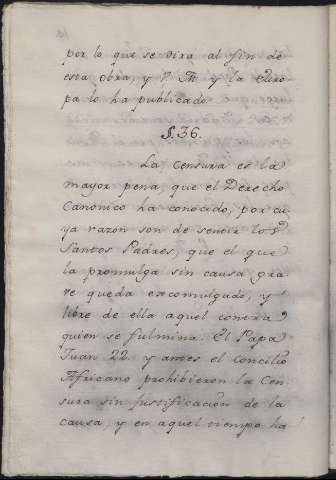 por lo que se dira al fin de
esta obra, y V. M. y la Euro
pa lo ha publicado
§. 36.
La censura es la
mayor pena, que el Derecho
Canonico ha conocido, por cu
ya razon son de sentir los
Santos Padres, que el que
la promulga sin causa gra
ve queda excomulgado, y
libre de ella aquel contra
quien se fulmina. El Papa
Juan 22. y antes el Concilio
Africano prohibieron la Cen
sura sin justificacion de la
causa, y en aquel tiempo ha